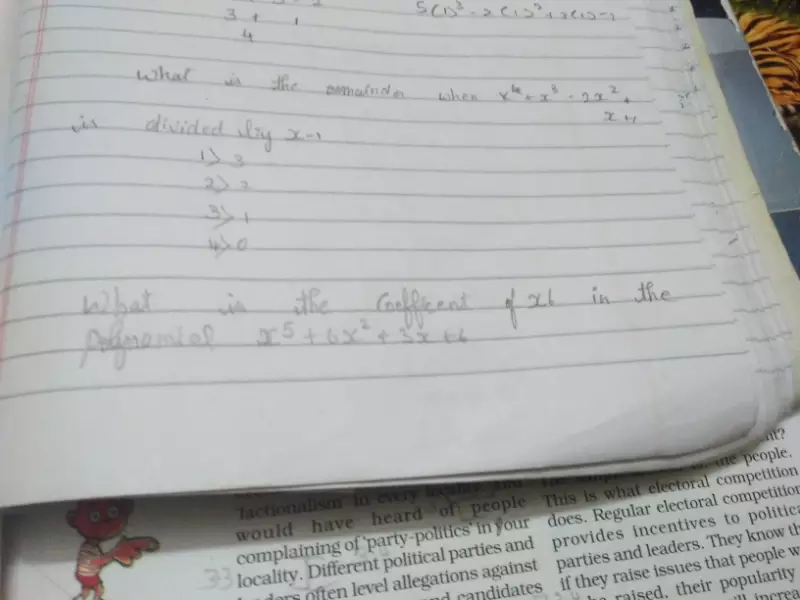 3 + 1
4
5(1)³ - 2(1)² + 3(1) - 2
What is the remainder when x⁴ + x³ - 2x² +
x+1
is divided by x-1
1> 3
2> 2
3> 1
4> 0
What is the Coefficent of x6 in the
polynomial x⁵ + 6x² + 3x + 6
factionalism in every
would have heard of people
complaining of 'party-politics' in your
locality. Different political parties and
leaders often level allegations against
candidates
33
the people.
This is what electoral competition
does. Regular electoral competition
provides incentives to political
parties and leaders. They know
if they raise issues that people
be raised, their popularity
will increa